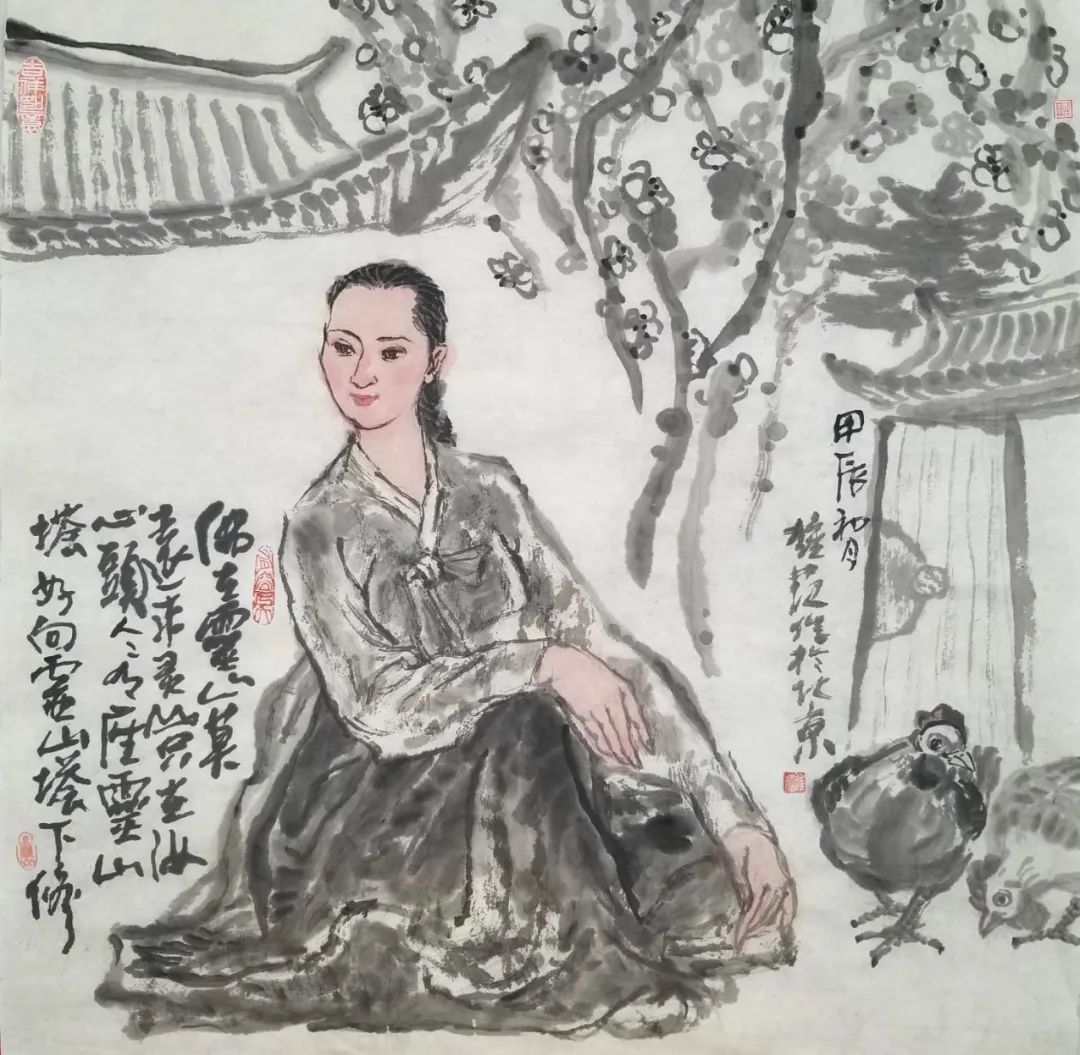 甲辰初月
作於
佛在靈山莫
遠求灵山只在汝
心頭人々有座靈山
塔好向靈山塔下修